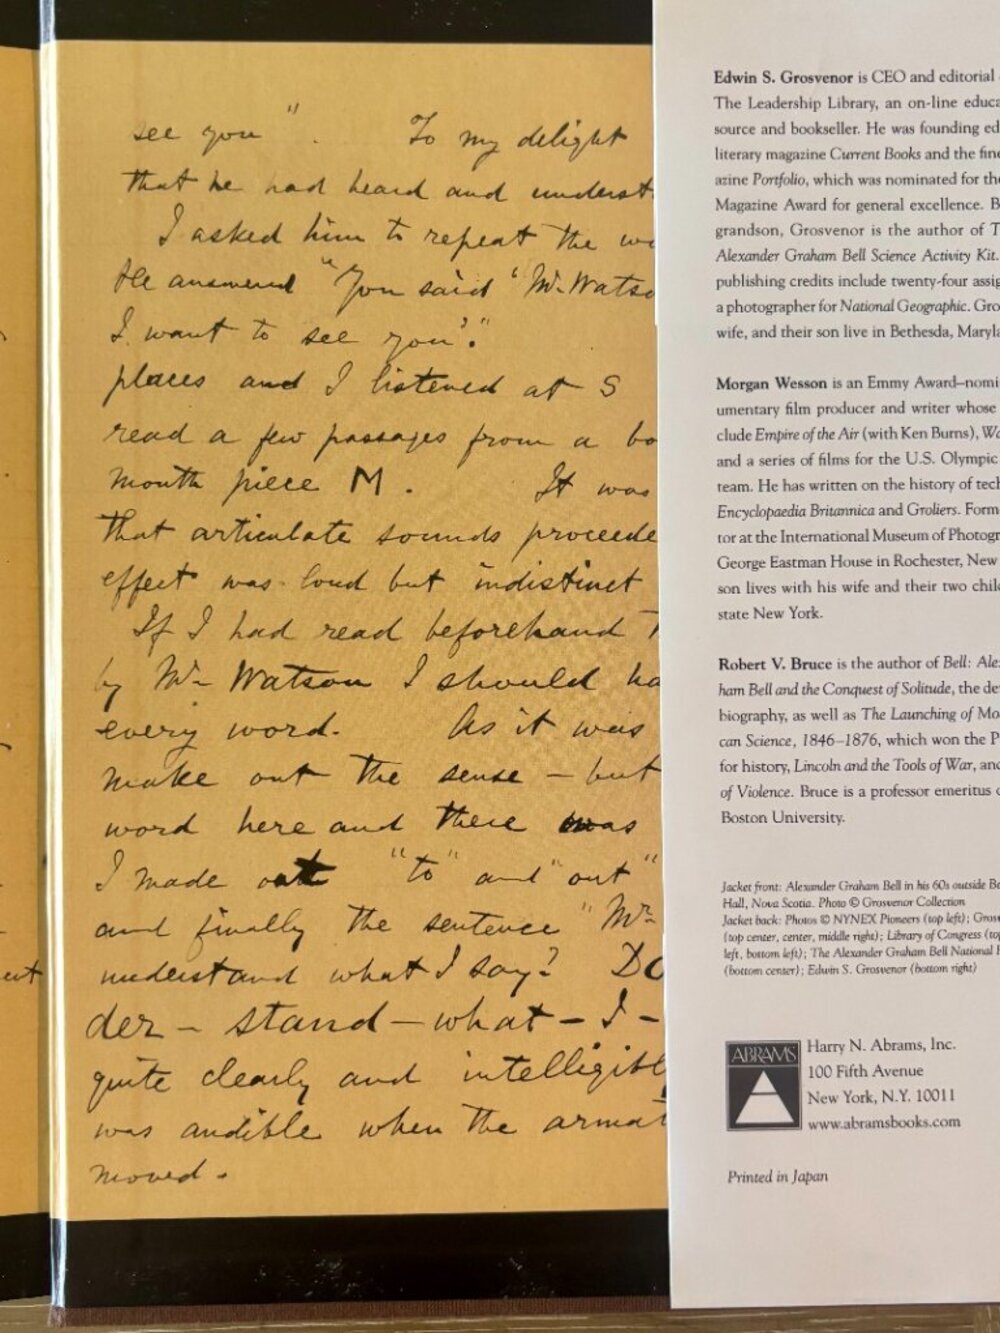 see you".   To my delight
that he had heard and underst
I asked him to repeat the wo
He answered "You said 'Mr. Watso
I want to see you'."
places and I listened at S
read a few passages from a bo
mouth piece M.   It was
that articulate sounds proceede
effect was loud but indistinct
If I had read beforehand
by Mr Watson I should ha
every word.   As it was
make out the sense - but
word here and there was
I made out "to" and "out"
and finally the sentence "Mr
understand what I say? Do
der - stand - what - I -
quite clearly and intelligibl
was audible when the armat
moved.
Edwin S. Grosvenor is CEO and editorial
The Leadership Library, an on-line educa
source and bookseller. He was founding ed
literary magazine Current Books and the fine
azine Portfolio, which was nominated for the
Magazine Award for general excellence. B
grandson, Grosvenor is the author of T
Alexander Graham Bell Science Activity Kit.
publishing credits include twenty-four assig
a photographer for National Geographic. Gro
wife, and their son live in Bethesda, Maryla
Morgan Wesson is an Emmy Award–nomi
umentary film producer and writer whose
clude Empire of the Air (with Ken Burns), Wo
and a series of films for the U.S. Olympic
team. He has written on the history of tech
Encyclopaedia Britannica and Groliers. Form
tor at the International Museum of Photogr
George Eastman House in Rochester, New
son lives with his wife and their two chil
state New York.
Robert V. Bruce is the author of Bell: Ale
ham Bell and the Conquest of Solitude, the de
biography, as well as The Launching of Mo
can Science, 1846–1876, which won the P
for history, Lincoln and the Tools of War, and
of Violence. Bruce is a professor emeritus
Boston University.
Jacket front: Alexander Graham Bell in his 60s outside Be
Hall, Nova Scotia. Photo © Grosvenor Collection
Jacket back: Photos © NYNEX Pioneers (top left); Gros
(top center, center, middle right); Library of Congress (to
left, bottom left); The Alexander Graham Bell National
(bottom center); Edwin S. Grosvenor (bottom right)
ABRAMS
Harry N. Abrams, Inc.
100 Fifth Avenue
New York, N.Y. 10011
www.abramsbooks.com
Printed in Japan